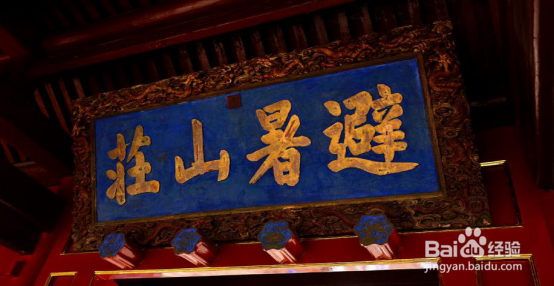 避暑山莊
Baidu经验
jingyan.baidu.com